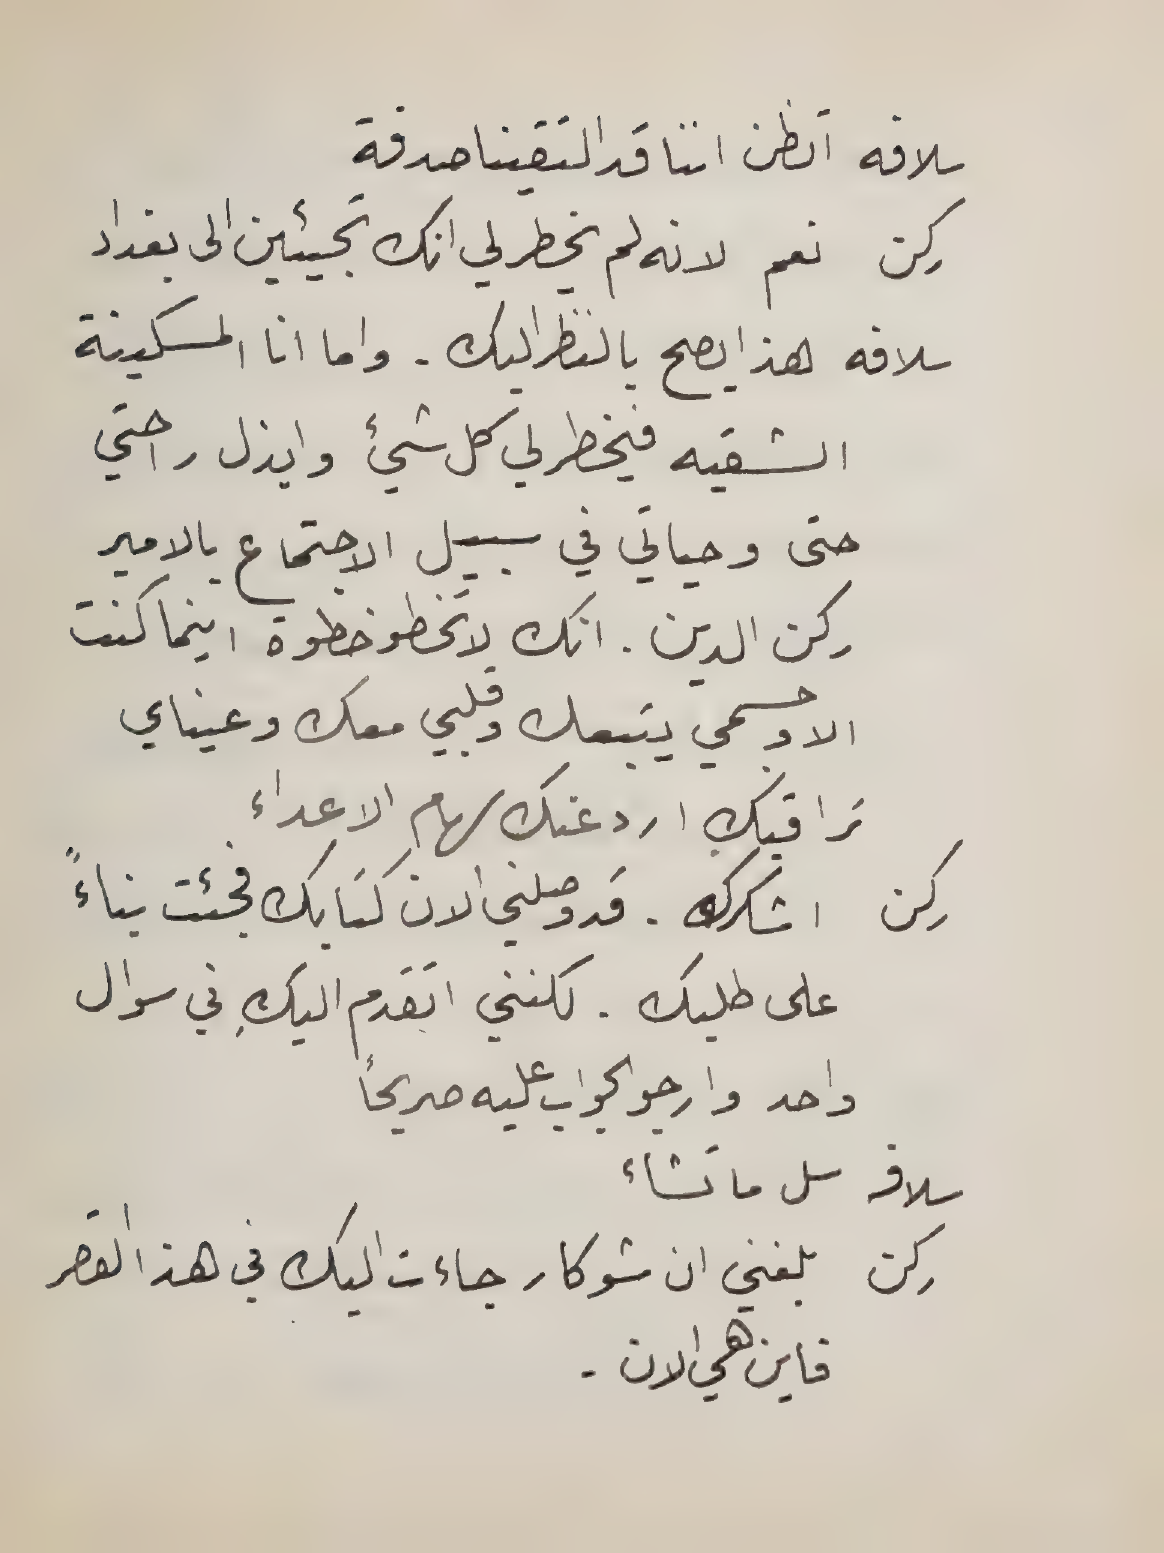 سلافه اتظن اننا قد التقينا صدفة
ركن نعم لانه لم يخطر لي انك تجيئين الى بغداد
سلافه هذا يصح بالنظر اليك . واما انا المسكينة
الشقيه فيخطر لي كل شيئ وابذل راحتي
حتى وحياتي في سبيل الاجتماع بالامير
ركن الدين . انك لا تخطو خطوة اينما كنت
الا وجسمي يتبعك وقلبي معك وعيناي
تراقبك ارد عنك سهام الاعداء
ركن اشكرك . قد وصلني الان كتابك فجئت بناءً
على طلبك . لكنني اتقدم اليكِ في سوال
واحد وارجو الجواب عليه صريحاً
سلافه سل ما تشاء
ركن بلغني ان شوكار جاءت اليك في هذا القصر
فاين هي الان .